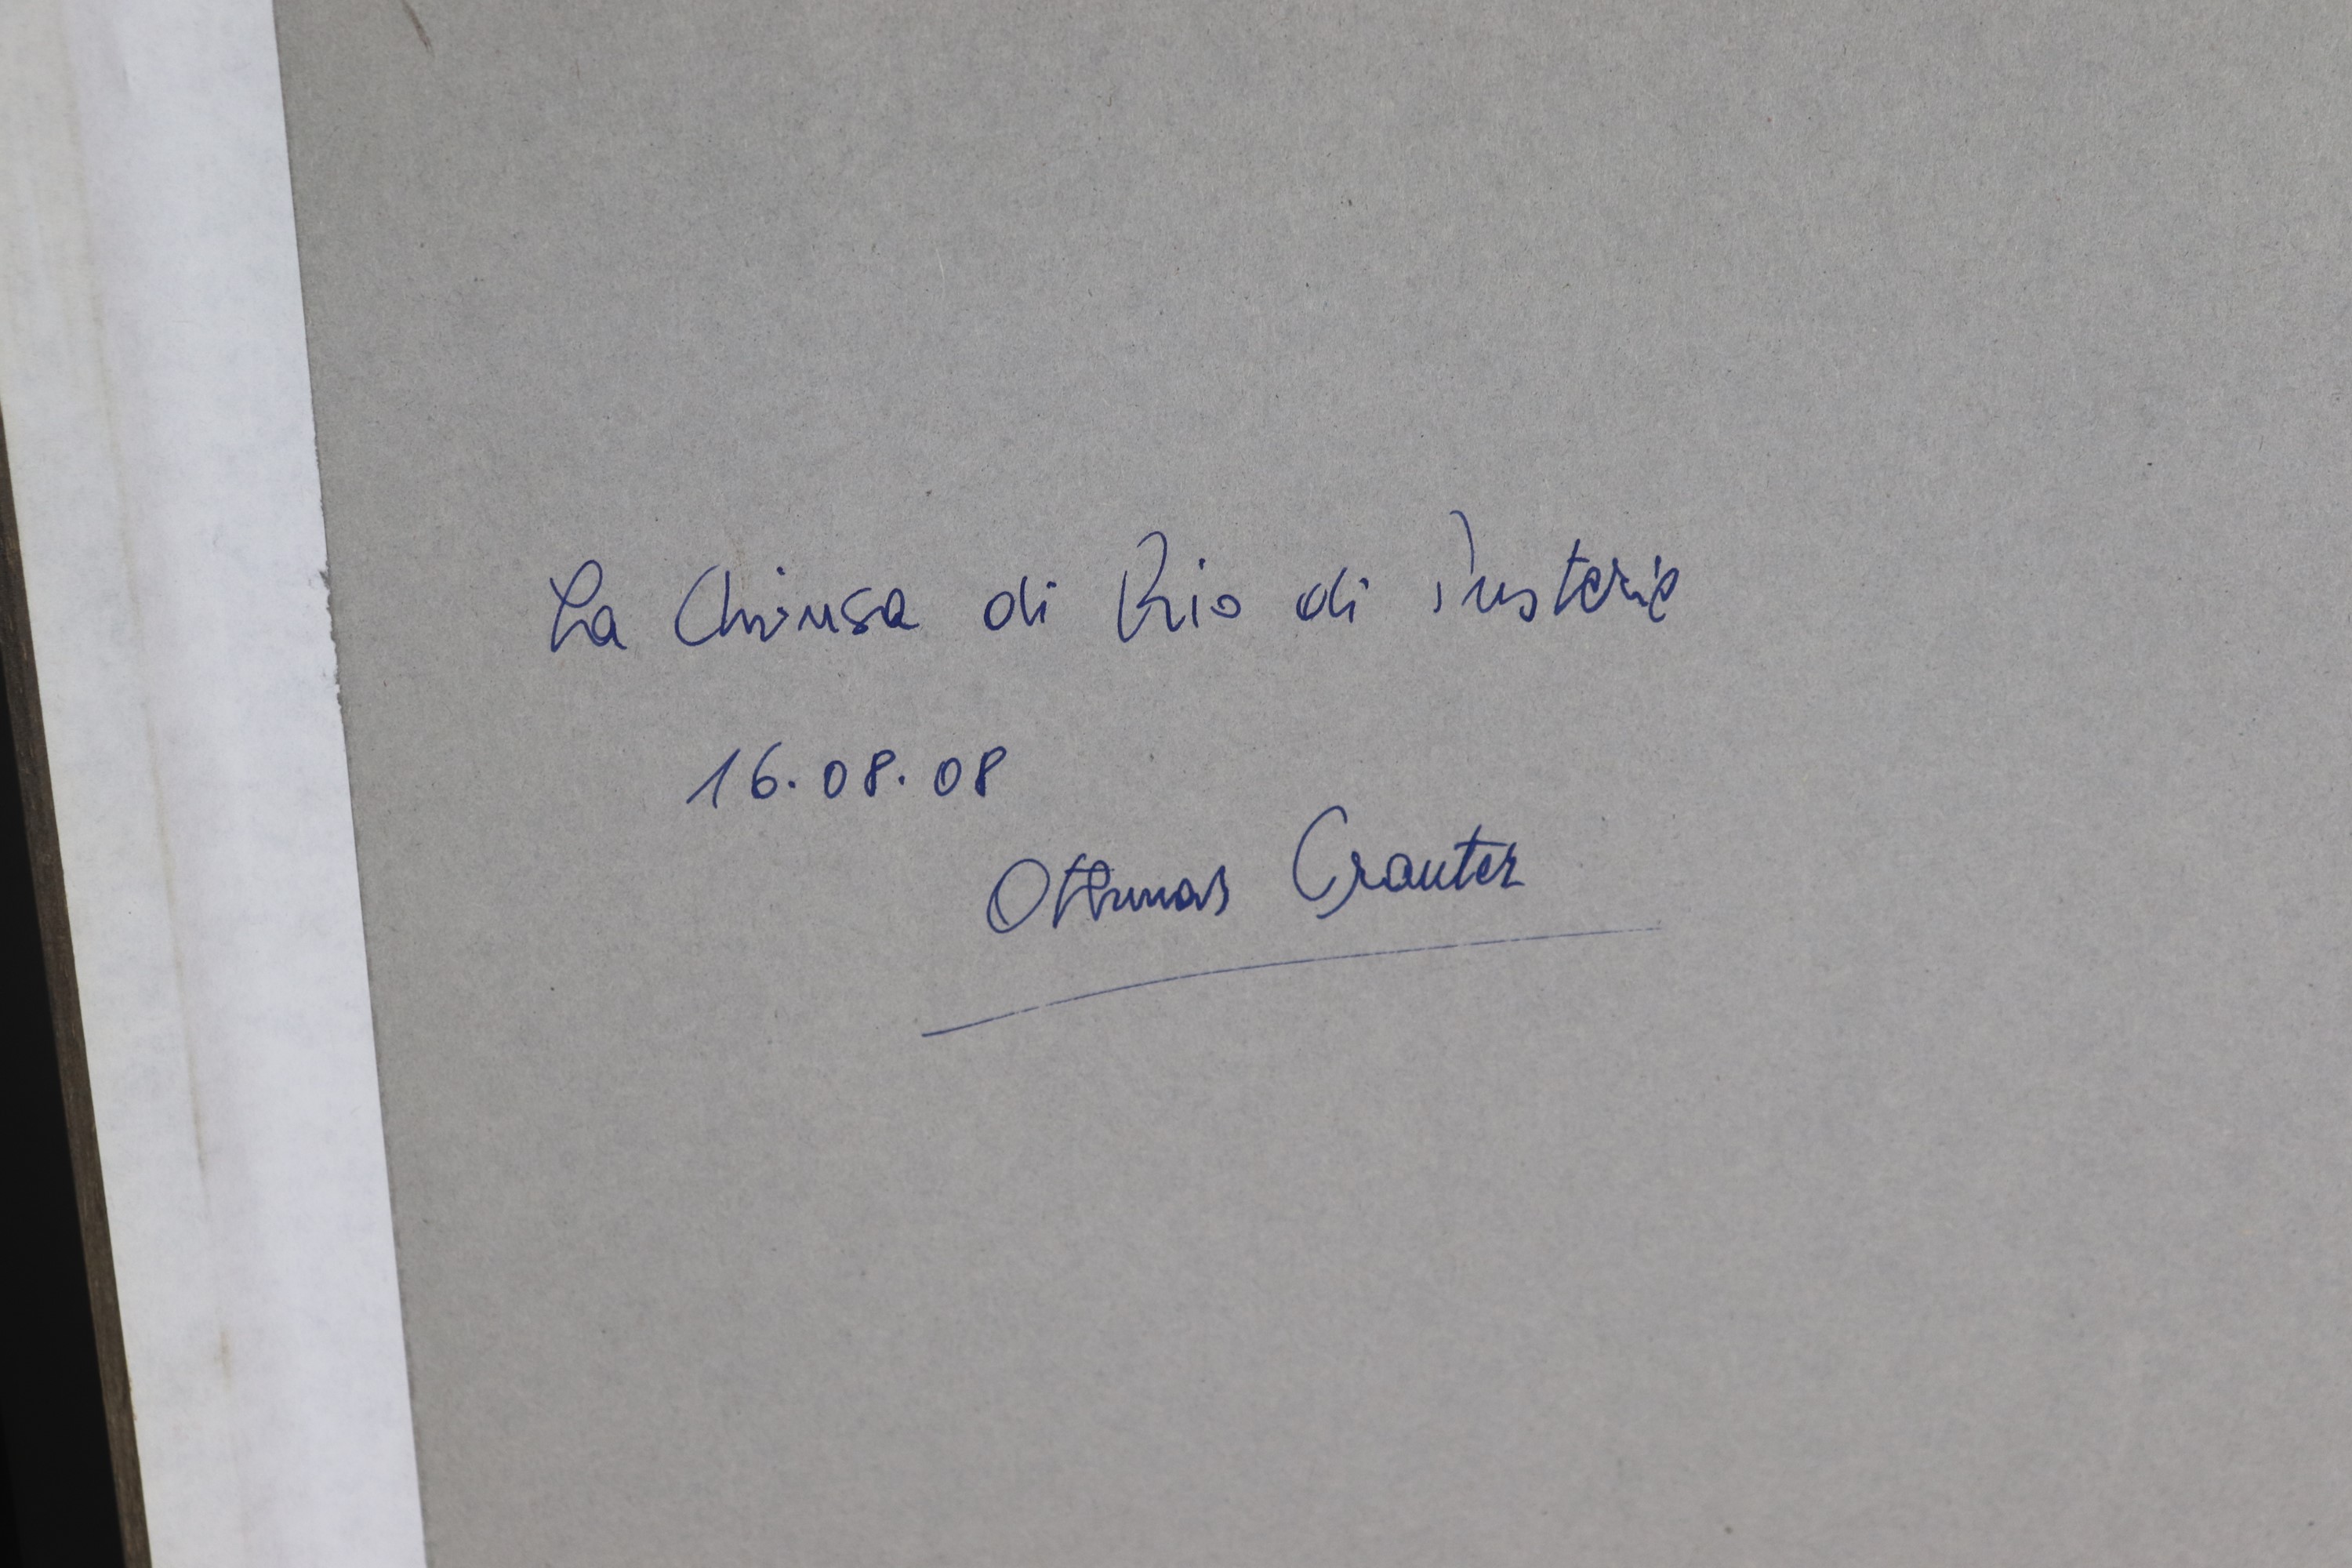 La Chiusa di Rio di Pusteria
16.08.08
Othmar Crauter